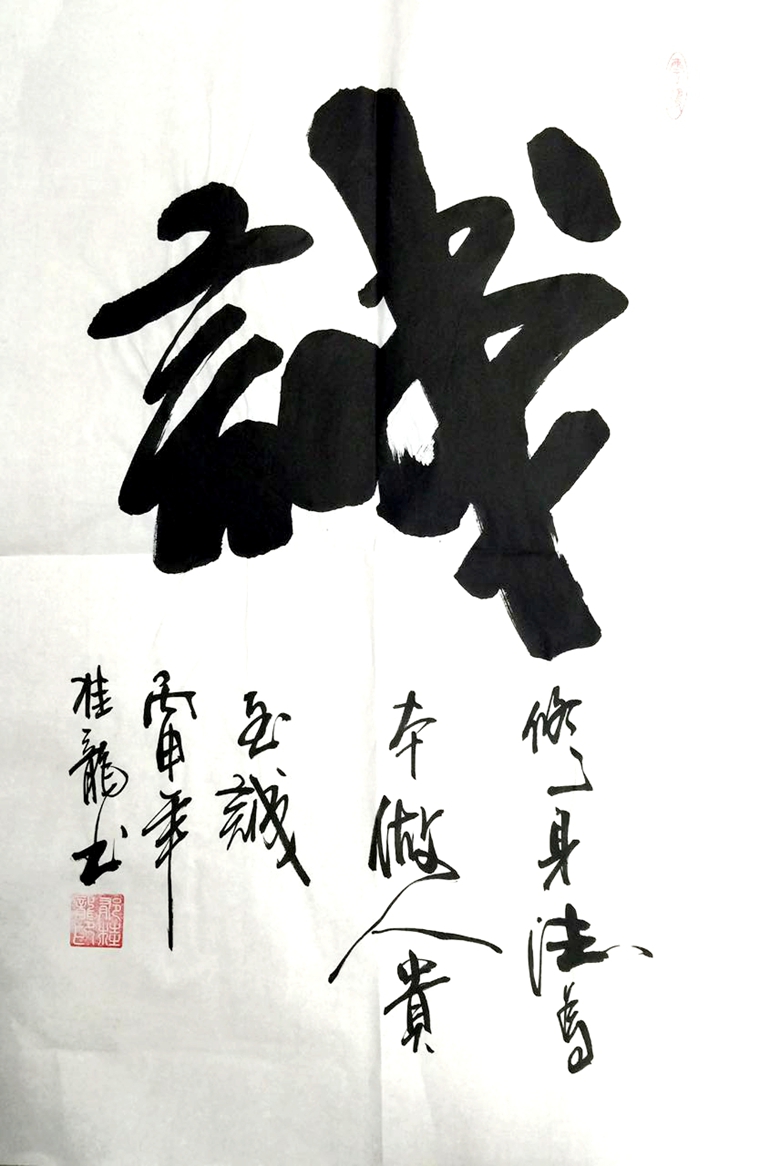 誠
修身德為
本做人貴
至誠
丙申年
桂龍书